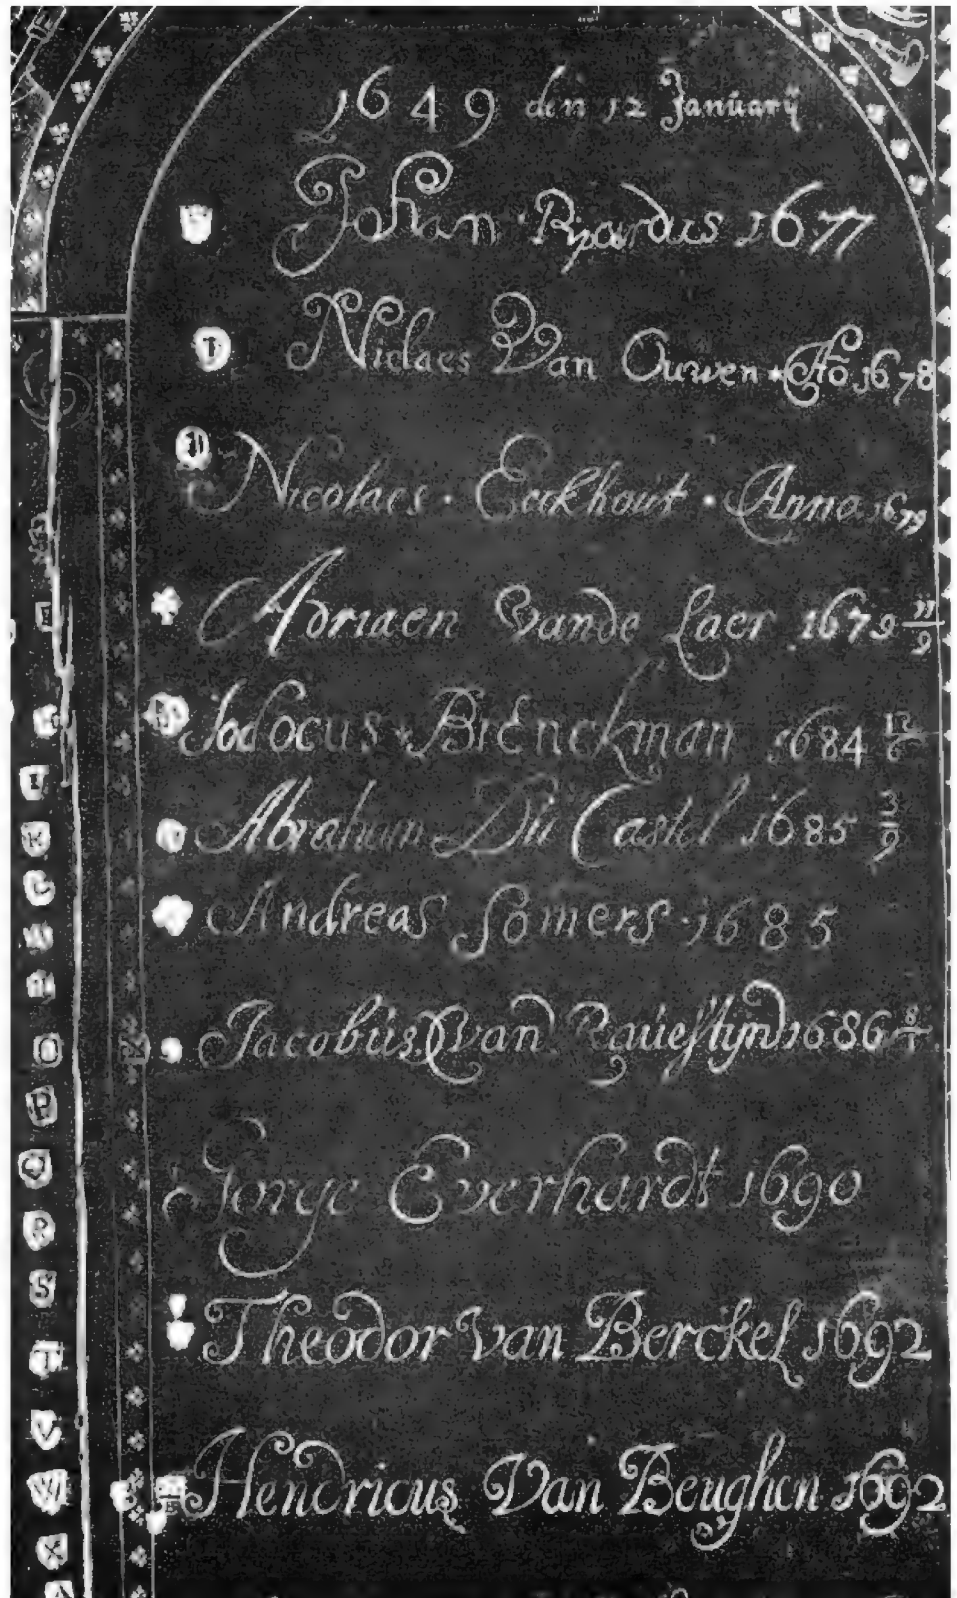 1649 den 12 Januarij
Johan Rijcardus 1677
Niclaes Van Ouwen Ao 1678
Nicolaes · Eeckhout · Anno 1679
Adriaen Vande Laer 1679 11/9
Jodocus Brenckman 1684 12/6
Abraham Du Castel 1685 3/9
Andreas Somers 1685
Jacobus Van Rauestijn 1686 8/1
Jorge Everhardt 1690
Theodor Van Berckel 1692
Hendricus Van Beughen 1692
I
K
L
M
N
O
P
Q
R
S
T
V
W
X